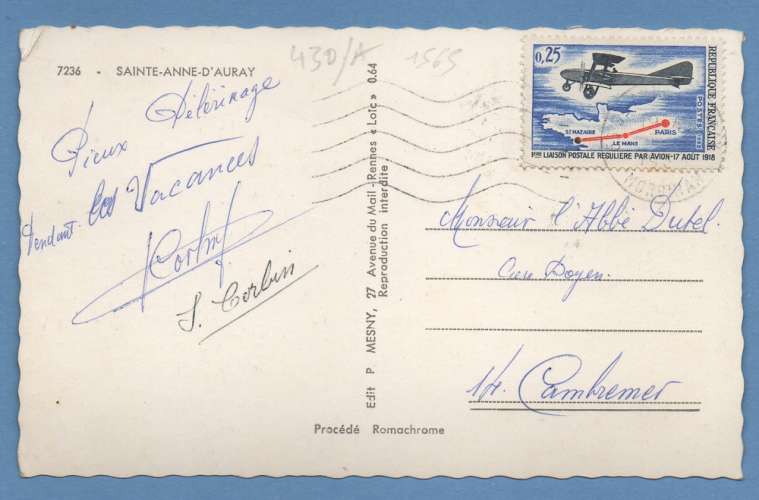 430/A 1565
7236 - SAINTE-ANNE-D'AURAY
Pieux Pélérinage
Pendant les Vacances
S. Corbin
Edit P MESNY, 27 Avenue du Mail - Rennes « Loïc » 0.64
Reproduction interdite
Procédé Romachrome
0,25
REPUBLIQUE FRANÇAISE
POSTES 1968
ST NAZAIRE
LE MANS
PARIS
1ère LIAISON POSTALE REGULIERE PAR AVION-17 AOUT 1918
MORBIHAN
Monsieur l'Abbé Dutel.
Curé Doyen.
14. Cambremer